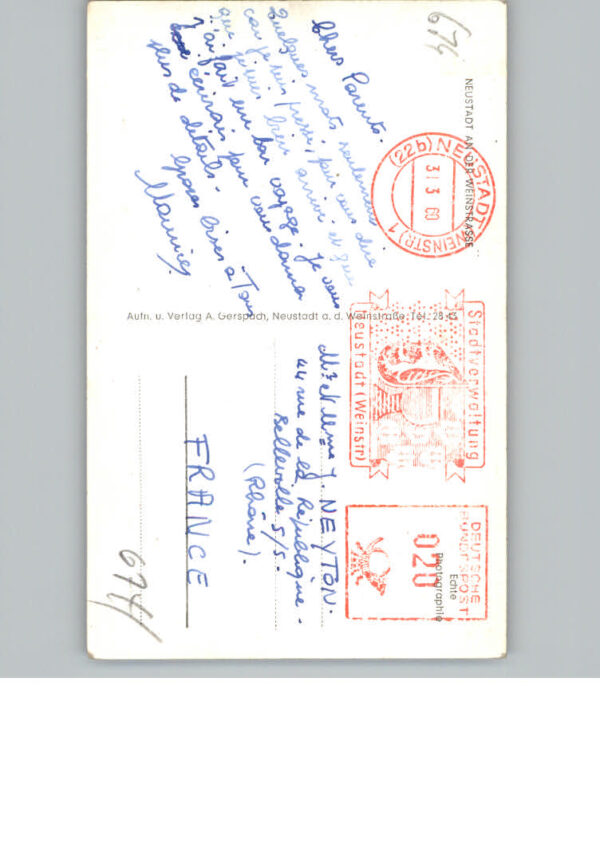 NEUSTADT AN DER WEINSTRASSE
Chers Parents.
Quelques mots seulement
car je suis pressé, pour vous dire
que je suis bien arrivé et que
j'ai fait un bon voyage. Je vous
écrirai pour vous donner
plus de détails.
Grosses bises à Tous
Maurice
Aufn. u. Verlag A. Gerspach, Neustadt a. d. Weinstraße, Tel. 28
Mr et Mme J. NEYTON.
44 rue de la République -
Belleville s/S.
(Rhône).
FRANCE
(22b) NEUSTADT
31 3 60
(WEINSTR) 1
Stadtverwaltung
Neustadt (Weinstr)
DEUTSCHE
BUNDESPOST
020
Echte
Photographie
674
674